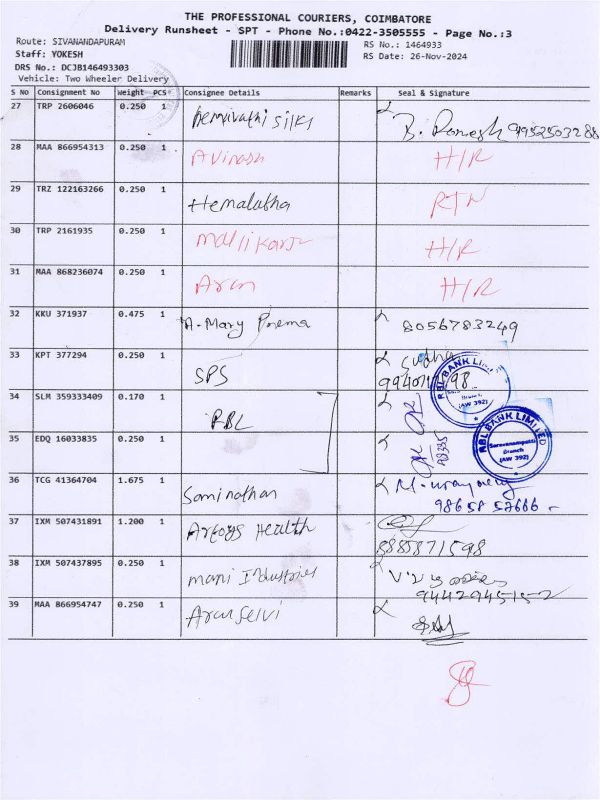 THE PROFESSIONAL COURIERS, COIMBATORE
Delivery Runsheet - SPT - Phone No.:0422-3505555 - Page No.:3
Route: SIVANANDAPURAM
RS No.: 1464933
Staff: YOKESH
RS Date: 26-Nov-2024
DRS No.: DC3B146493303
Vehicle: Two Wheeler Delivery
S No Consignment No Weight PCS Consignee Details Remarks Seal & Signature
27 TRP 2606046 0.250 1 Hemavathi Silks B. Ramesh 9952503288
28 MAA 866954313 0.250 1 Avinash H/R
29 TRZ 122163266 0.250 1 Hemalatha RTN
30 TRP 2161935 0.250 1 Mallikarju H/R
31 MAA 868236074 0.250 1 Arun H/R
32 KKU 371937 0.475 1 A-Mary Prema 8056783249
33 KPT 377294 0.250 1 SPS Sudha
34 SLM 359333409 0.170 1 RBL
RBL BANK LIMITED
(AW 392)
35 EDQ 16033835 0.250 1
RBL BANK LIMITED
Saravanampatti
Branch
(AW 392)
36 TCG 41364704 1.675 1 Saminathan
37 IXM 507431891 1.200 1 Health 8885871598
38 IXM 507437895 0.250 1 Mani Industries 9442945152
39 MAA 866954747 0.250 1 Arun Selvi